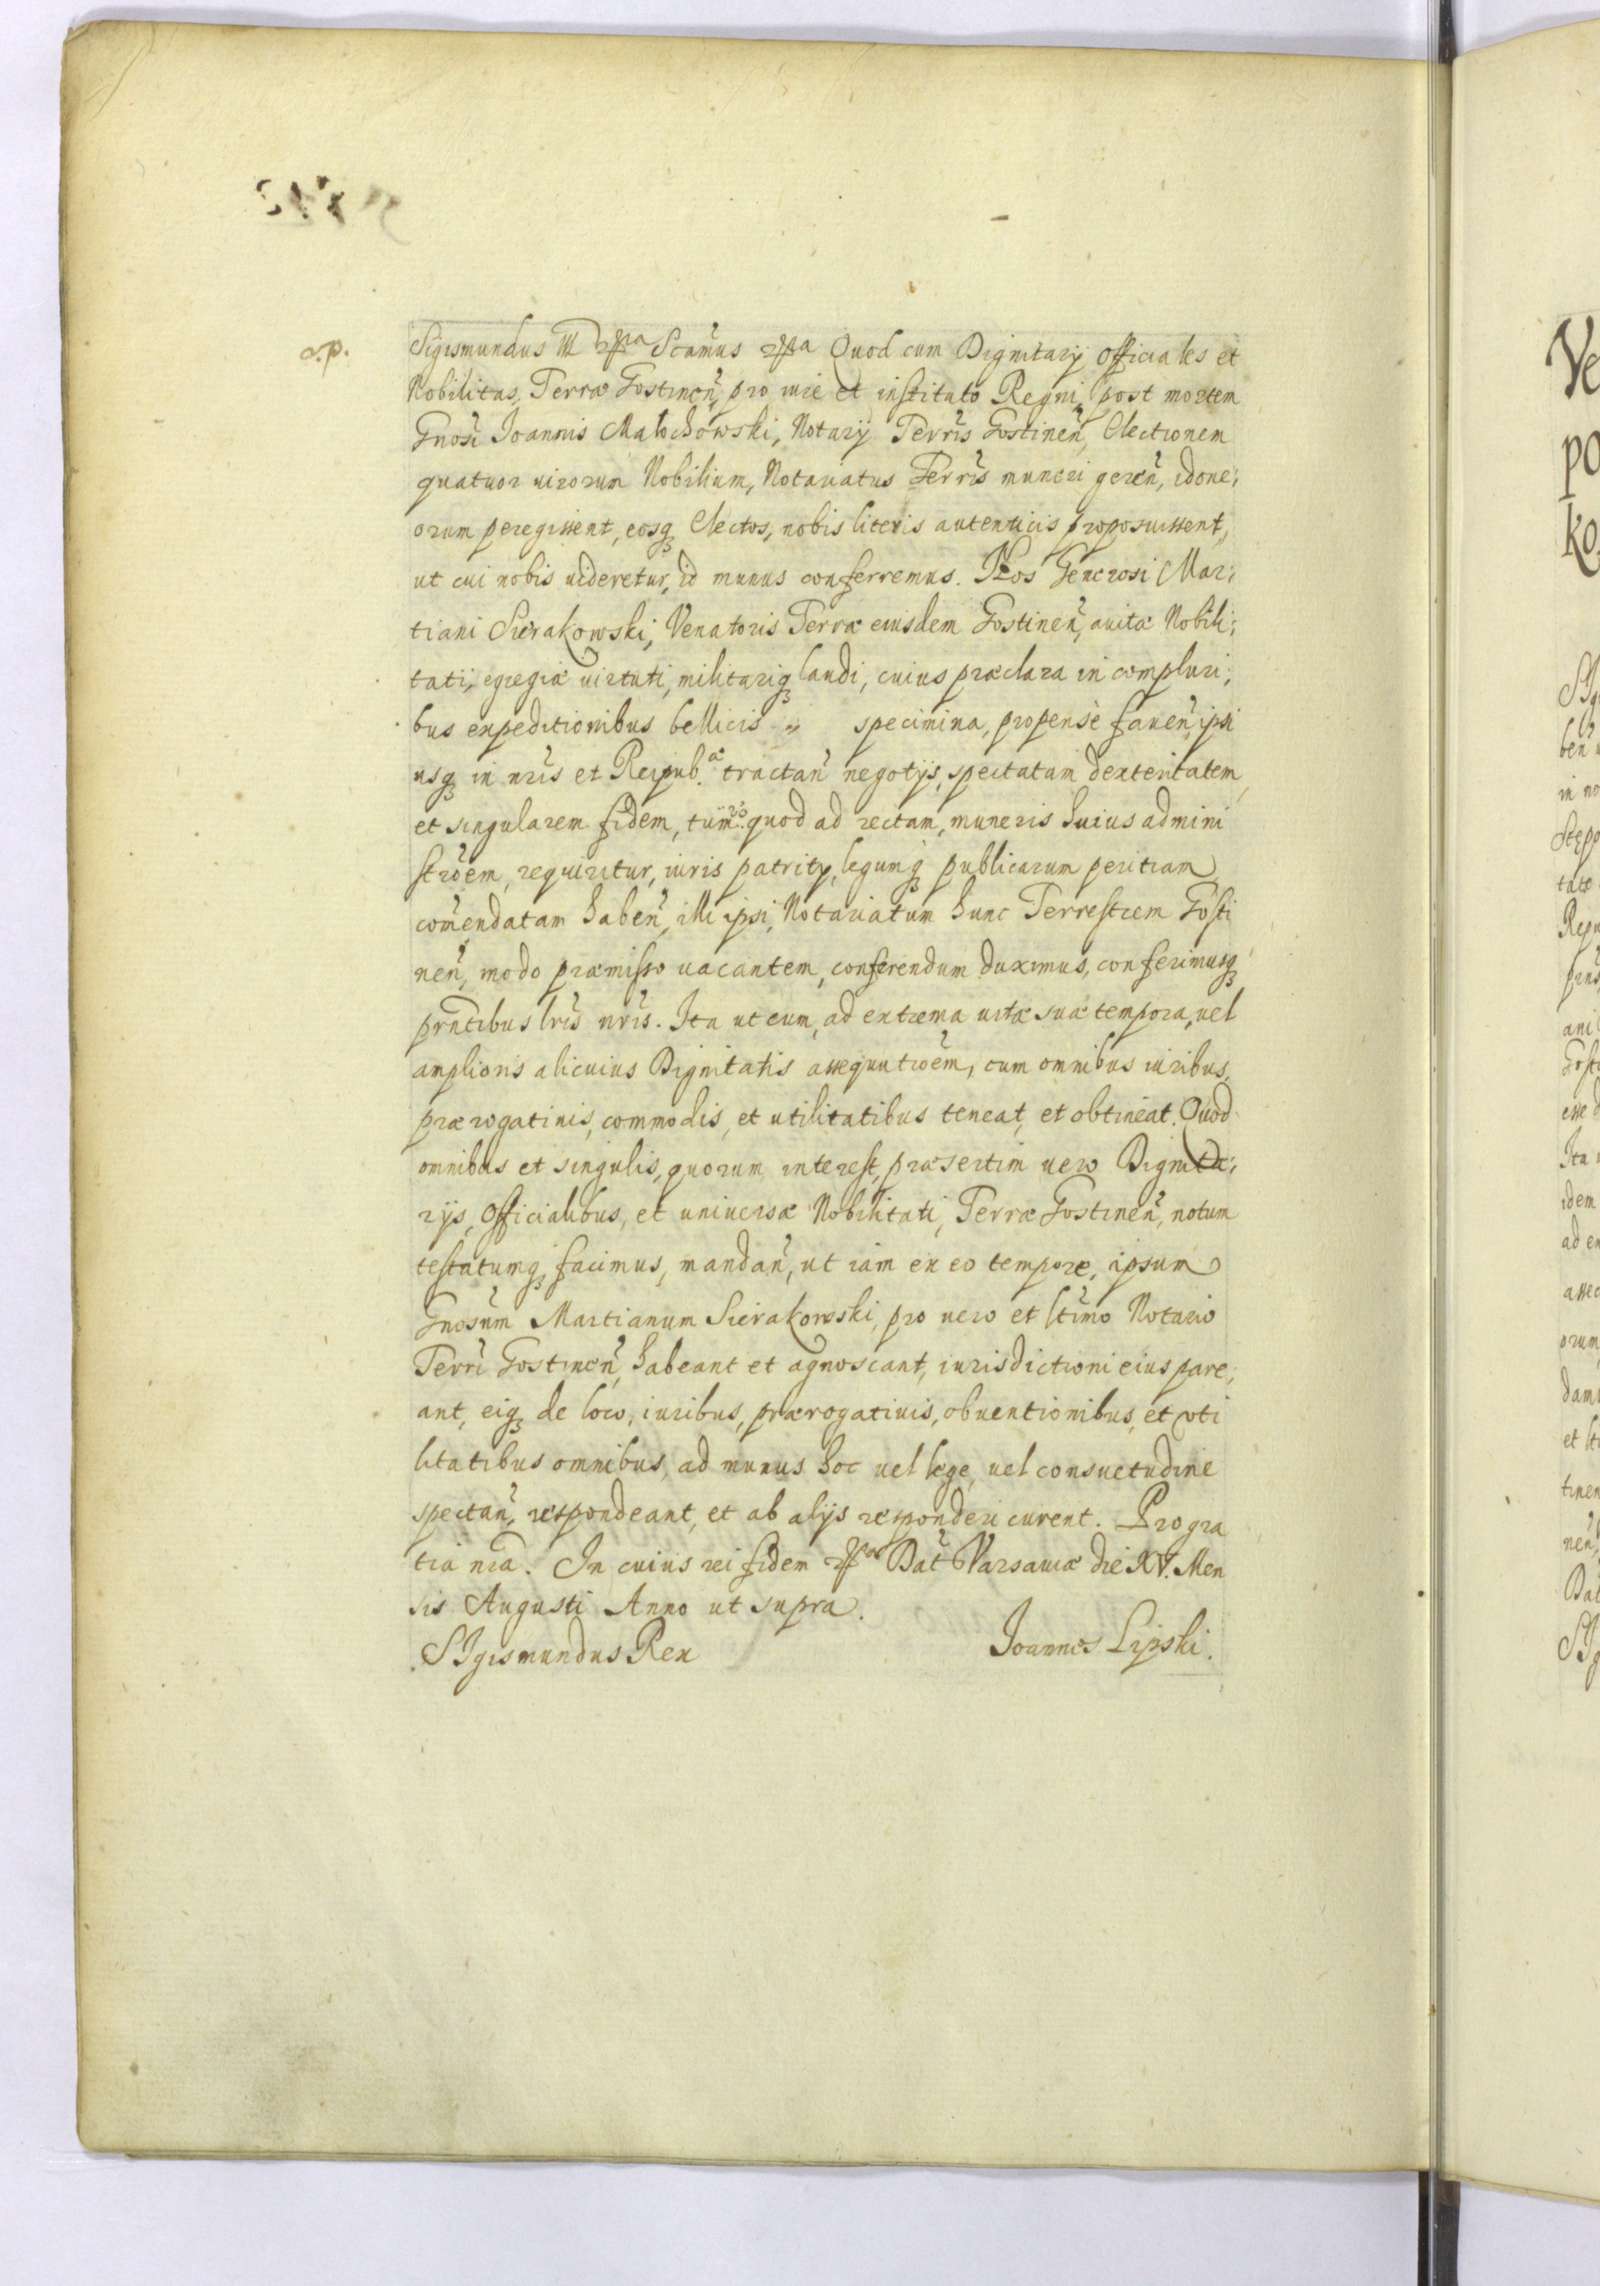 a.p.
Sigismundus III etc̃a Scãmus etc̃a Quod cum Dignitarij officiales et
Nobilitas, Terræ Gostineñ, pro iure et instituto Regni, post mortem
Gnosi Joannis Małochowski, Notarij Terris Gostineñ, Electionem
quatuor uirorum Nobilium, Notariatus Terris muneri gereñ, idone;
orum peregissent, eosq; Electos, nobis literis autenticis proposuissent,
ut cui nobis uideretur, id munus conferremus. Nos Generosi Mar;
tiani Sierakowski, Venatoris Terræ eiusdem Gostineñ, auitæ Nobili;
tati, egregiæ uirtuti, militariq; laudi, cuius præclara in compluri;
bus expeditionibus bellicis „ specimina, propensè faueñ, ipsi
usq; in nris et Reipub.æ tractañ negotijs, spectatam dexteritatem,
et singularem fidem, tum quod ad rectam, muneris huius admini
strõem, requiritur, iuris patrity, legumq; publicarum peritiam,
com̃endatam habeñ, illi ipsi, Notariatum hunc Terrestrem Gosti
neñ, modo præmisso uacantem, conferendum duximus, conferimusq;
prñtibus lris nris. Ita ut eum, ad extrema uitæ suæ tempora, uel
amplioris alicuius Dignitatis assequutiõem, cum omnibus iuribus,
prærogatiuis, commodis, et utilitatibus teneat, et obtineat. Quod
omnibus et singulis, quorum interest, præsertim uero Dignita;
rijs, Officialibus, et uniuersæ Nobilitati, Terræ Gostineñ, notum
testatumq; facimus, mandañ, ut iam ex eo tempore, ipsum
Gnosum Martianum Sierakowski, pro uero et ltimo Notario
Terri Gostineñ, habeant et agnoscant, iurisdictioni eius pare;
ant, eiq; de loco, iuribus, prærogatiuis, obuentionibus, et uti
litatibus omnibus, ad munus hoc uel lege, uel consuetudine
spectañ, respondeant, et ab alijs responderi curent. Pro gra
tia nra. In cuius rei fidem etc̃a Dat Varsauiæ die XV. Men
sis Augusti Anno ut supra.
SIgismundus Rex Joannes Lipski.